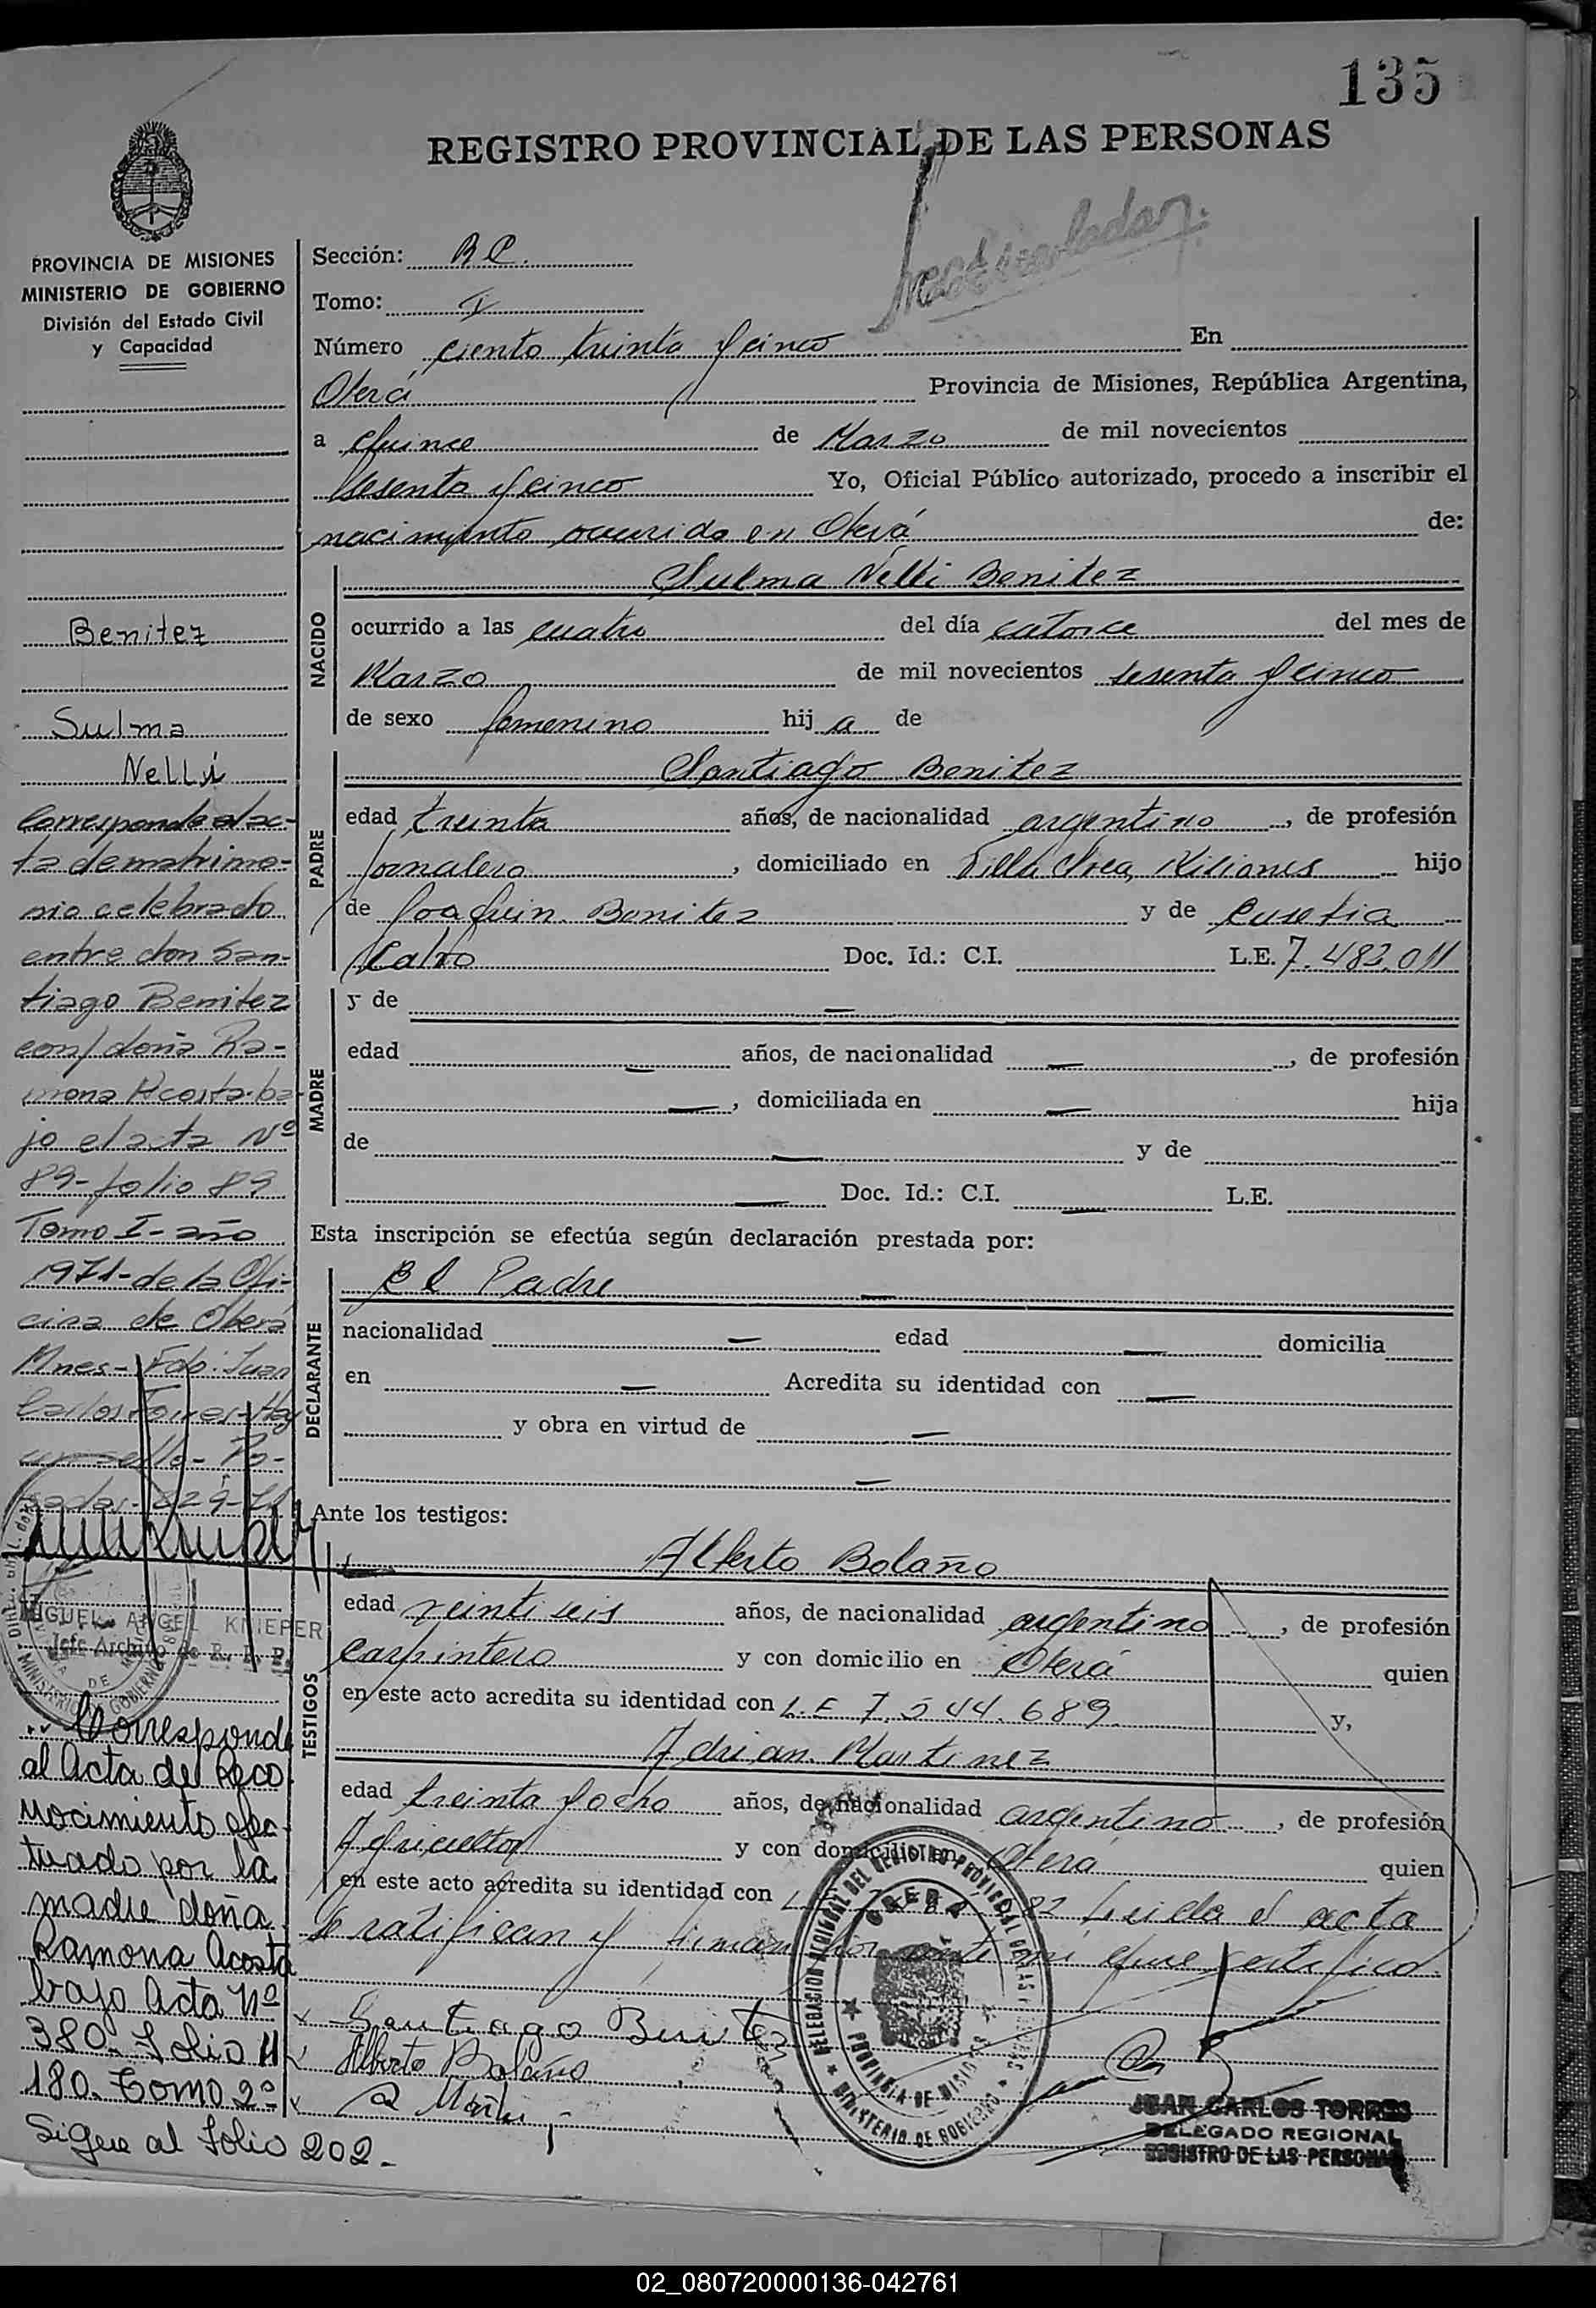 135
REGISTRO PROVINCIAL DE LAS PERSONAS
Matriculada
PROVINCIA DE MISIONES
MINISTERIO DE GOBIERNO
División del Estado Civil
y Capacidad
Benitez
Sulma
Nelli
Corresponde al ac-
ta de matrimo-
nio celebrado
entre don San-
tiago Benitez
con doña Ra-
mona Acosta ba-
jo el acta Nº
89-folio 89
Tomo I-año
1971-de la Ofi-
cina de Oberá
Mnes-Fdo: Juan
Carlos Torres-Hay
un sello-Po-
sadas-
MIGUEL ANGEL KNIEPER
Jefe Archivo de R. P. P.
Corresponde
al Acta de Reco
nocimiento efec
tuado por la
madre doña
Ramona Acosta
bajo Acta Nº
380. Folio
180. Tomo 2º
Sigue al Folio 202.-
Sección:
Tomo:
Número ciento treinta y cinco En
Oberá Provincia de Misiones, República Argentina,
a Quince de Marzo de mil novecientos
sesenta y cinco Yo, Oficial Público autorizado, procedo a inscribir el
nacimiento ocurrido en Oberá de:
NACIDO
Sulma Nelli Benitez
ocurrido a las cuatro del día catorce del mes de
Marzo de mil novecientos sesenta y cinco
de sexo femenino hij a de
PADRE
Santiago Benitez
edad treinta años, de nacionalidad argentino, de profesión
Jornalero, domiciliado en Villa Misiones hijo
de Joaquin Benitez y de Eusebia
Calvo Doc. Id.: C.I. L.E. 7.483.011
MADRE
y de —
edad — años, de nacionalidad —, de profesión
—, domiciliada en — hija
de — y de
— Doc. Id.: C.I. — L.E.
Esta inscripción se efectúa según declaración prestada por:
DECLARANTE
El Padre —
nacionalidad — edad — domicilia
en — Acredita su identidad con —
y obra en virtud de —
—
Ante los testigos:
TESTIGOS
Alberto Bolaño
edad veintiseis años, de nacionalidad argentino, de profesión
Carpintero y con domicilio en Oberá quien
en este acto acredita su identidad con L.E 7.544.689 y,
Adrian Martinez
edad treinta y ocho años, de nacionalidad argentino, de profesión
Agricultor y con domicilio en Oberá quien
en este acto acredita su identidad con 82 Leida el acta
se ratifican y firman por ante mi que certifico
Santiago Benitez
Alberto Bolaño
DELEGACION REGIONAL DEL REGISTRO PROVINCIAL DE LAS PERSONAS
OBERA
PROVINCIA DE MISIONES
MINISTERIO DE GOBIERNO
JUAN CARLOS TORRES
DELEGADO REGIONAL
REGISTRO DE LAS PERSONAS
02_080720000136-042761